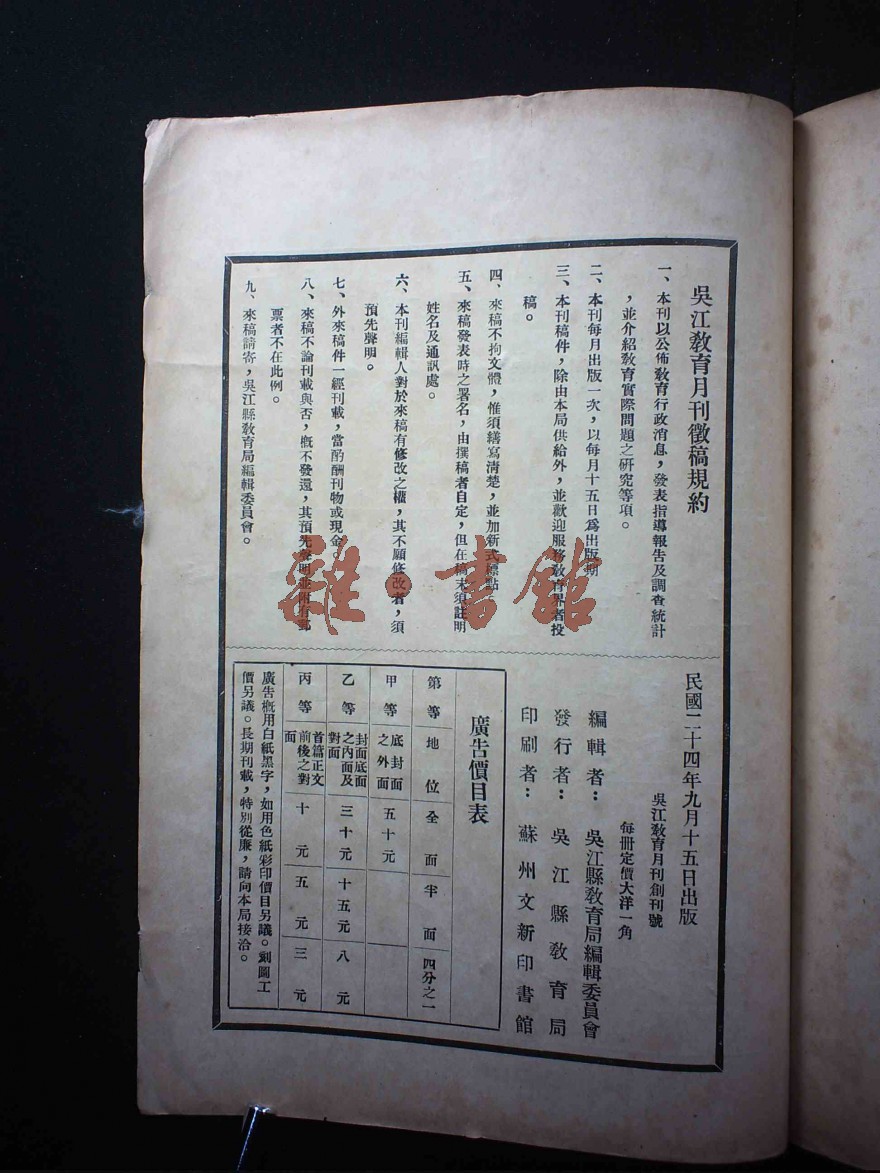 吳江教育月刊徵稿規約
一、本刊以公佈教育行政消息，發表指導報告及調查統計
，並介紹教育實際問題之研究等項。
二、本刊每月出版一次，以每月十五日爲出版期
三、本刊稿件，除由本局供給外，並歡迎服務教育界者投
稿。
四、來稿不拘文體，惟須繕寫清楚，並加新式標點
五、來稿發表時之署名，由撰稿者自定，但在稿末須註明
姓名及通訊處。
六、本刊編輯人對於來稿有修改之權，其不願修改者，須
預先聲明。
七、外來稿件一經刊載，當酌酬刊物或現金。
八、來稿不論刊載與否，槪不發還，其預先聲明並附有郵
票者不在此例。
九、來稿請寄，吳江縣教育局編輯委員會。
民國二十四年九月十五日出版
吳江教育月刊創刊號
每冊定價大洋一角
編輯者：吳江縣教育局編輯委員會
發行者：吳江縣教育局
印刷者：蘇州文新印書館
廣告價目表
第等 地位 全面 半面 四分之一
甲等 底封面之外面 五十元
乙等 封面底面之內面及對面 三十元 十五元 八元
丙等 首篇正文前後之對面 十元 五元 三元
廣告概用白紙黑字，如用色紙彩印價目另議。刻圖工
價另議。長期刊載，特別從廉，請向本局接洽。
雜·書館